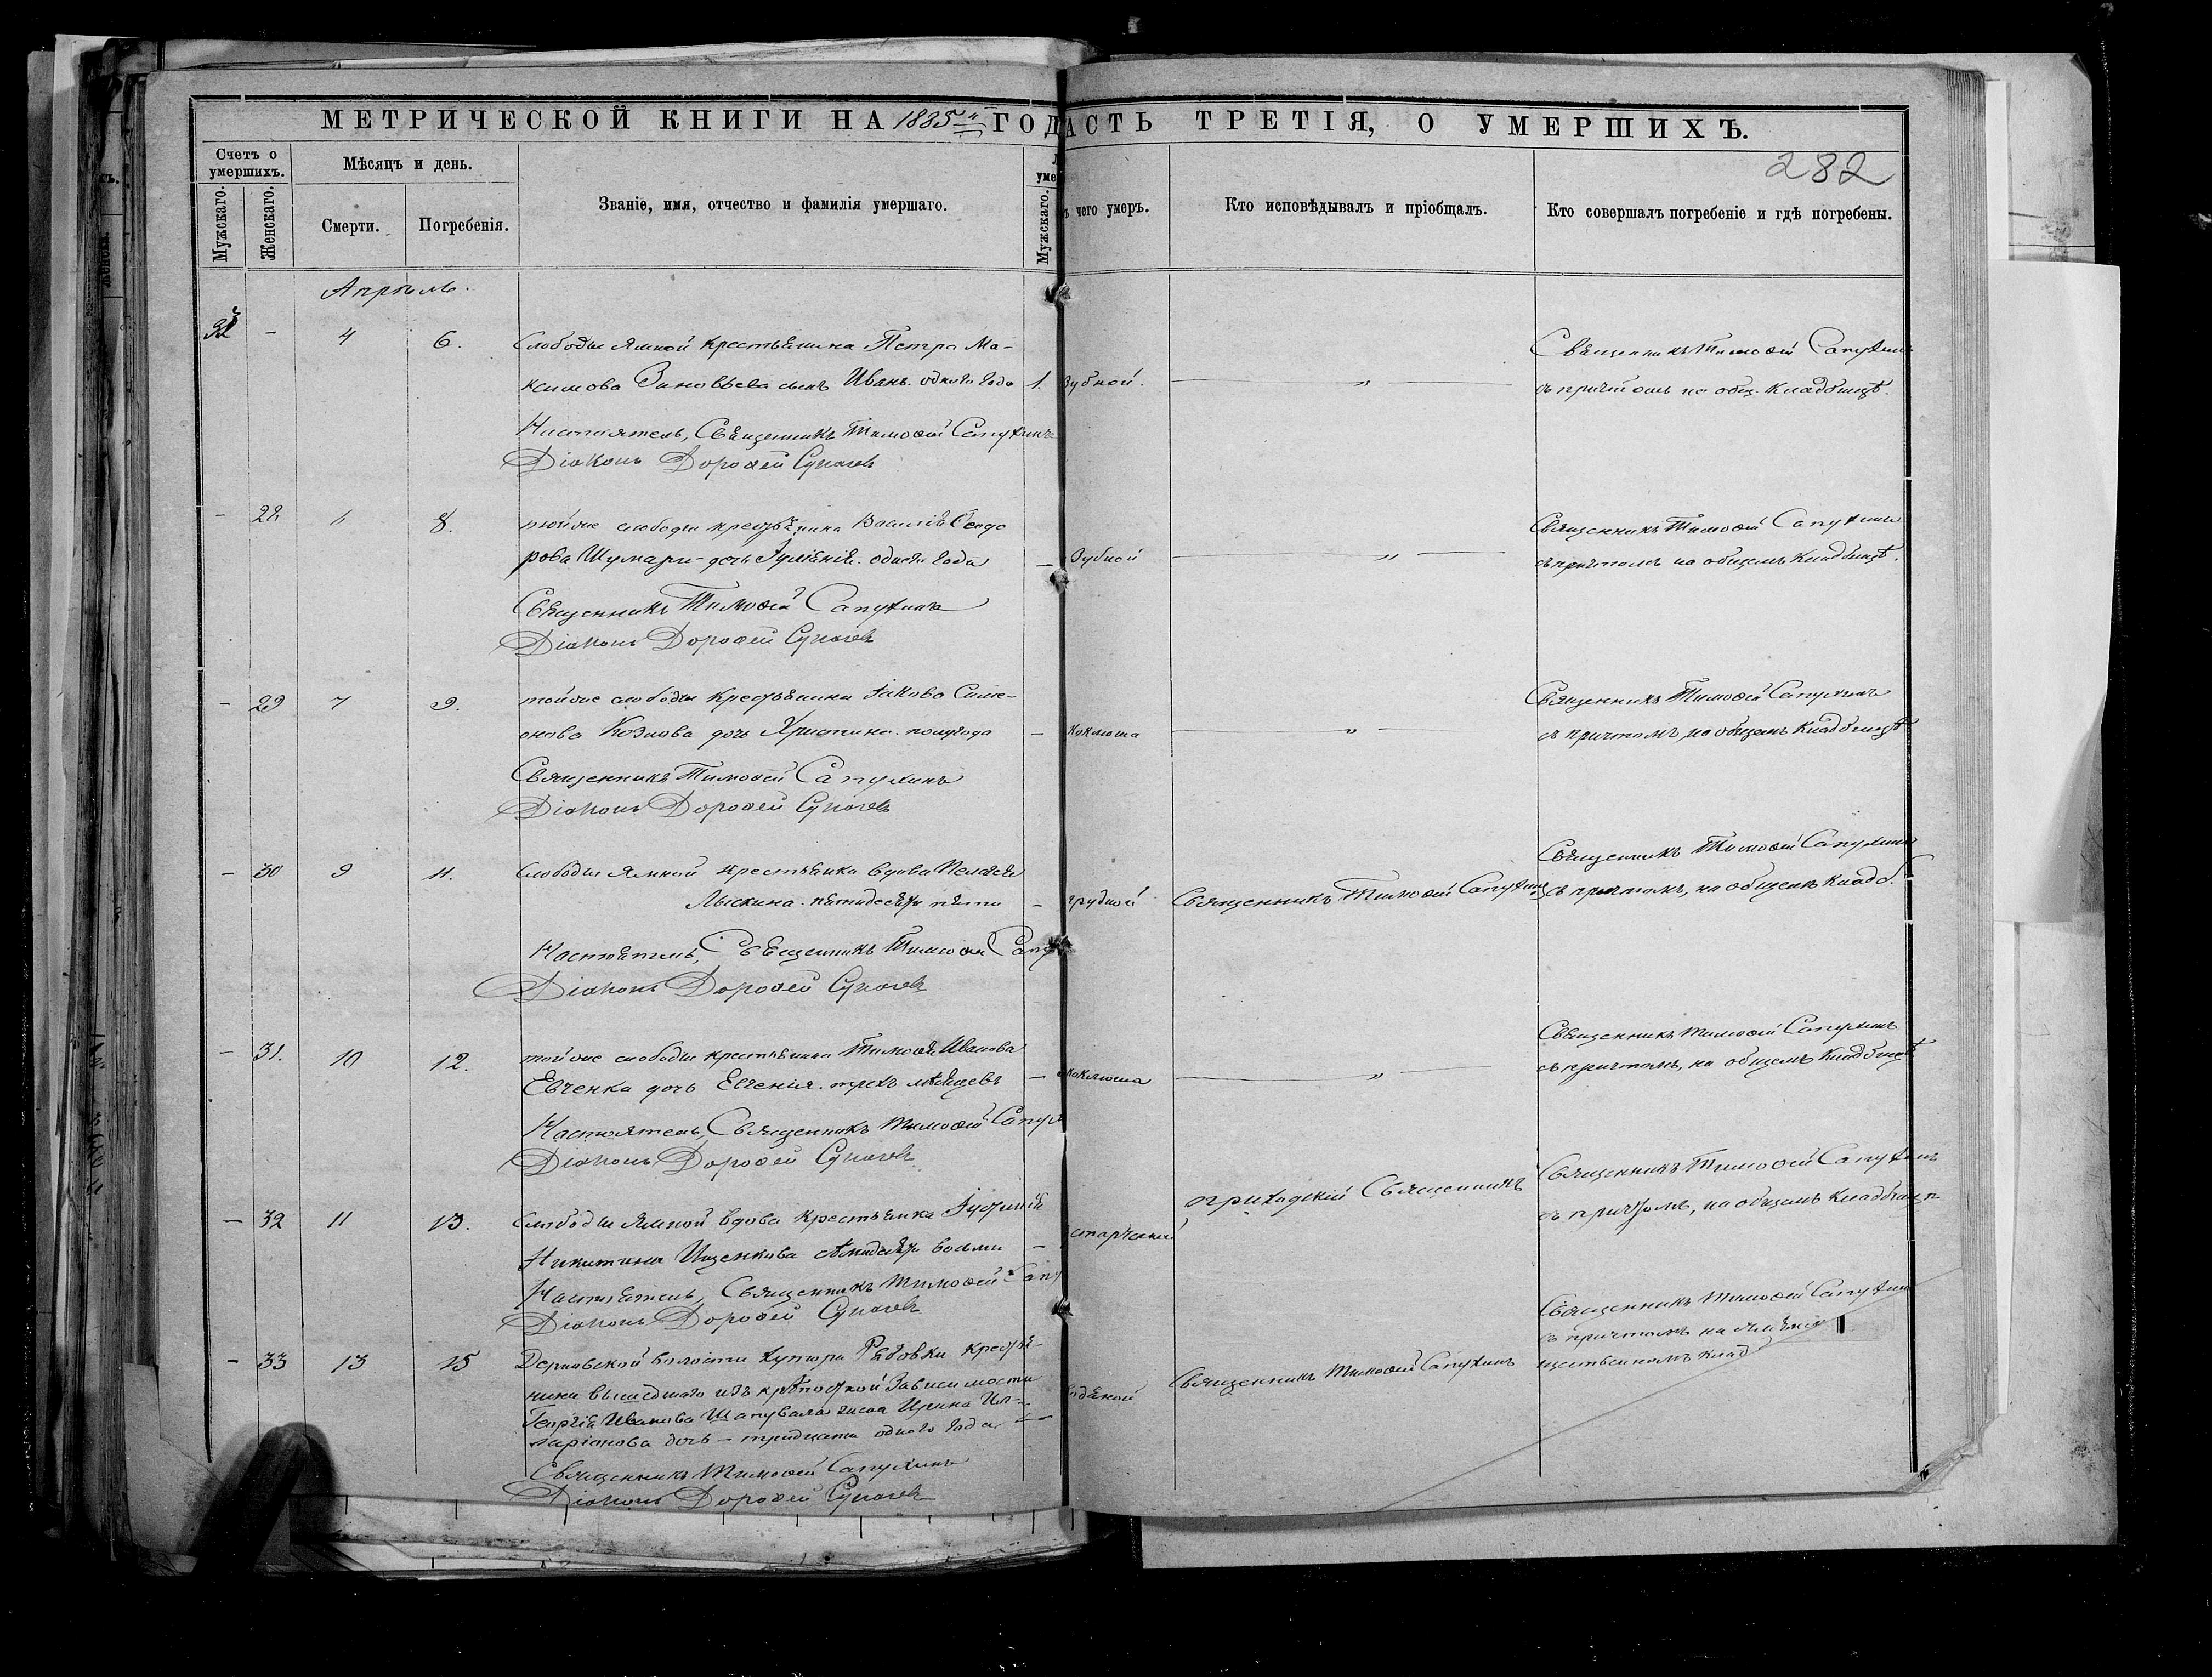 МЕТРИЧЕСКОЙ КНИГИ НА 1885 ГОД
АСТЬ ТРЕТІЯ, О УМЕРШИХЪ.
282
Счетъ о умершихъ.
Мужскаго.
Женскаго.
Мѣсяцъ и день.
Смерти.
Погребенія.
Званіе, имя, отчество и фамилія умершаго.
Мужскаго.
чего умеръ.
Кто исповѣдывалъ и пріобщалъ.
Кто совершалъ погребеніе и гдѣ погребены.
Апрѣль.
- 4 6. Слободы Ямной крестьянина Петра Ма-
ксимова Зиновьева сынъ Иванъ. одного года 1. Зубной. „
Священникъ Тимофей Сапухинъ
съ причтомъ на общ. Кладбищѣ.
Настоятель, Священникъ Тимоѳей Сапухинъ
Діаконъ Дороѳей
- 28 6 8. тойже слободы крестьянина Василія Ѳеодо
рова дочь одного года - Зубной „
Священникъ Тимоѳей Сапухинъ
съ причтомъ на общемъ Кладбищѣ.
Священникъ Тимоѳей Сапухинъ
Діаконъ Дороѳей
- 29 7 9. тойже слободы крестьянина Іакова Симе-
онова Козлова дочь Христина. полугода - Коклюша „
Священникъ Тимоѳей Сапухинъ
съ причтомъ, на общемъ Кладбищѣ
Священникъ Тимоѳей Сапухинъ
Діаконъ Дороѳей
- 30 9 11. Слободы Ямной крестьянка вдова Пелагея
Лыскина. пятидесяти пяти - грудной Священникъ Тимоѳей Сапухинъ
Священникъ Тимоѳей Сапухинъ
съ причтомъ, на общемъ Кладб.
Настоятель, Священникъ Тимоѳей Сапу
Діаконъ Дороѳей
- 31. 10 12. тойже слободы крестьянина Тимоѳея Иванова
Евченка дочь Евгенія. трехъ мѣсяцевъ - коклюша „
Священникъ Тимоѳей Сапухинъ
съ причтомъ, на общемъ Кладбищѣ
Настоятель, Священникъ Тимоѳей Сапух
Діаконъ Дороѳей
- 32 11 13. Слободы Ямной вдова крестьянка
Никитина Ищенкова восьми - старчески приходскій Священникъ
Священникъ Тимоѳей Сапухинъ
съ причтомъ, на общемъ Кладбищѣ
Настоятель, Священникъ Тимоѳей Сапу
Діаконъ Дороѳей
- 33 13 15 волости хутора Рябовки крестья-
нина вышедшаго изъ крѣпостной зависимости
Георгія Иванова Шаповала жена Ирина Ил-
ларіонова дочь - тридцати одного года - Священникъ Тимоѳей Сапухинъ
Священникъ Тимоѳей Сапухинъ
съ причтомъ на
щественномъ Клад
Священникъ Тимоѳей Сапухинъ
Діаконъ Дороѳей